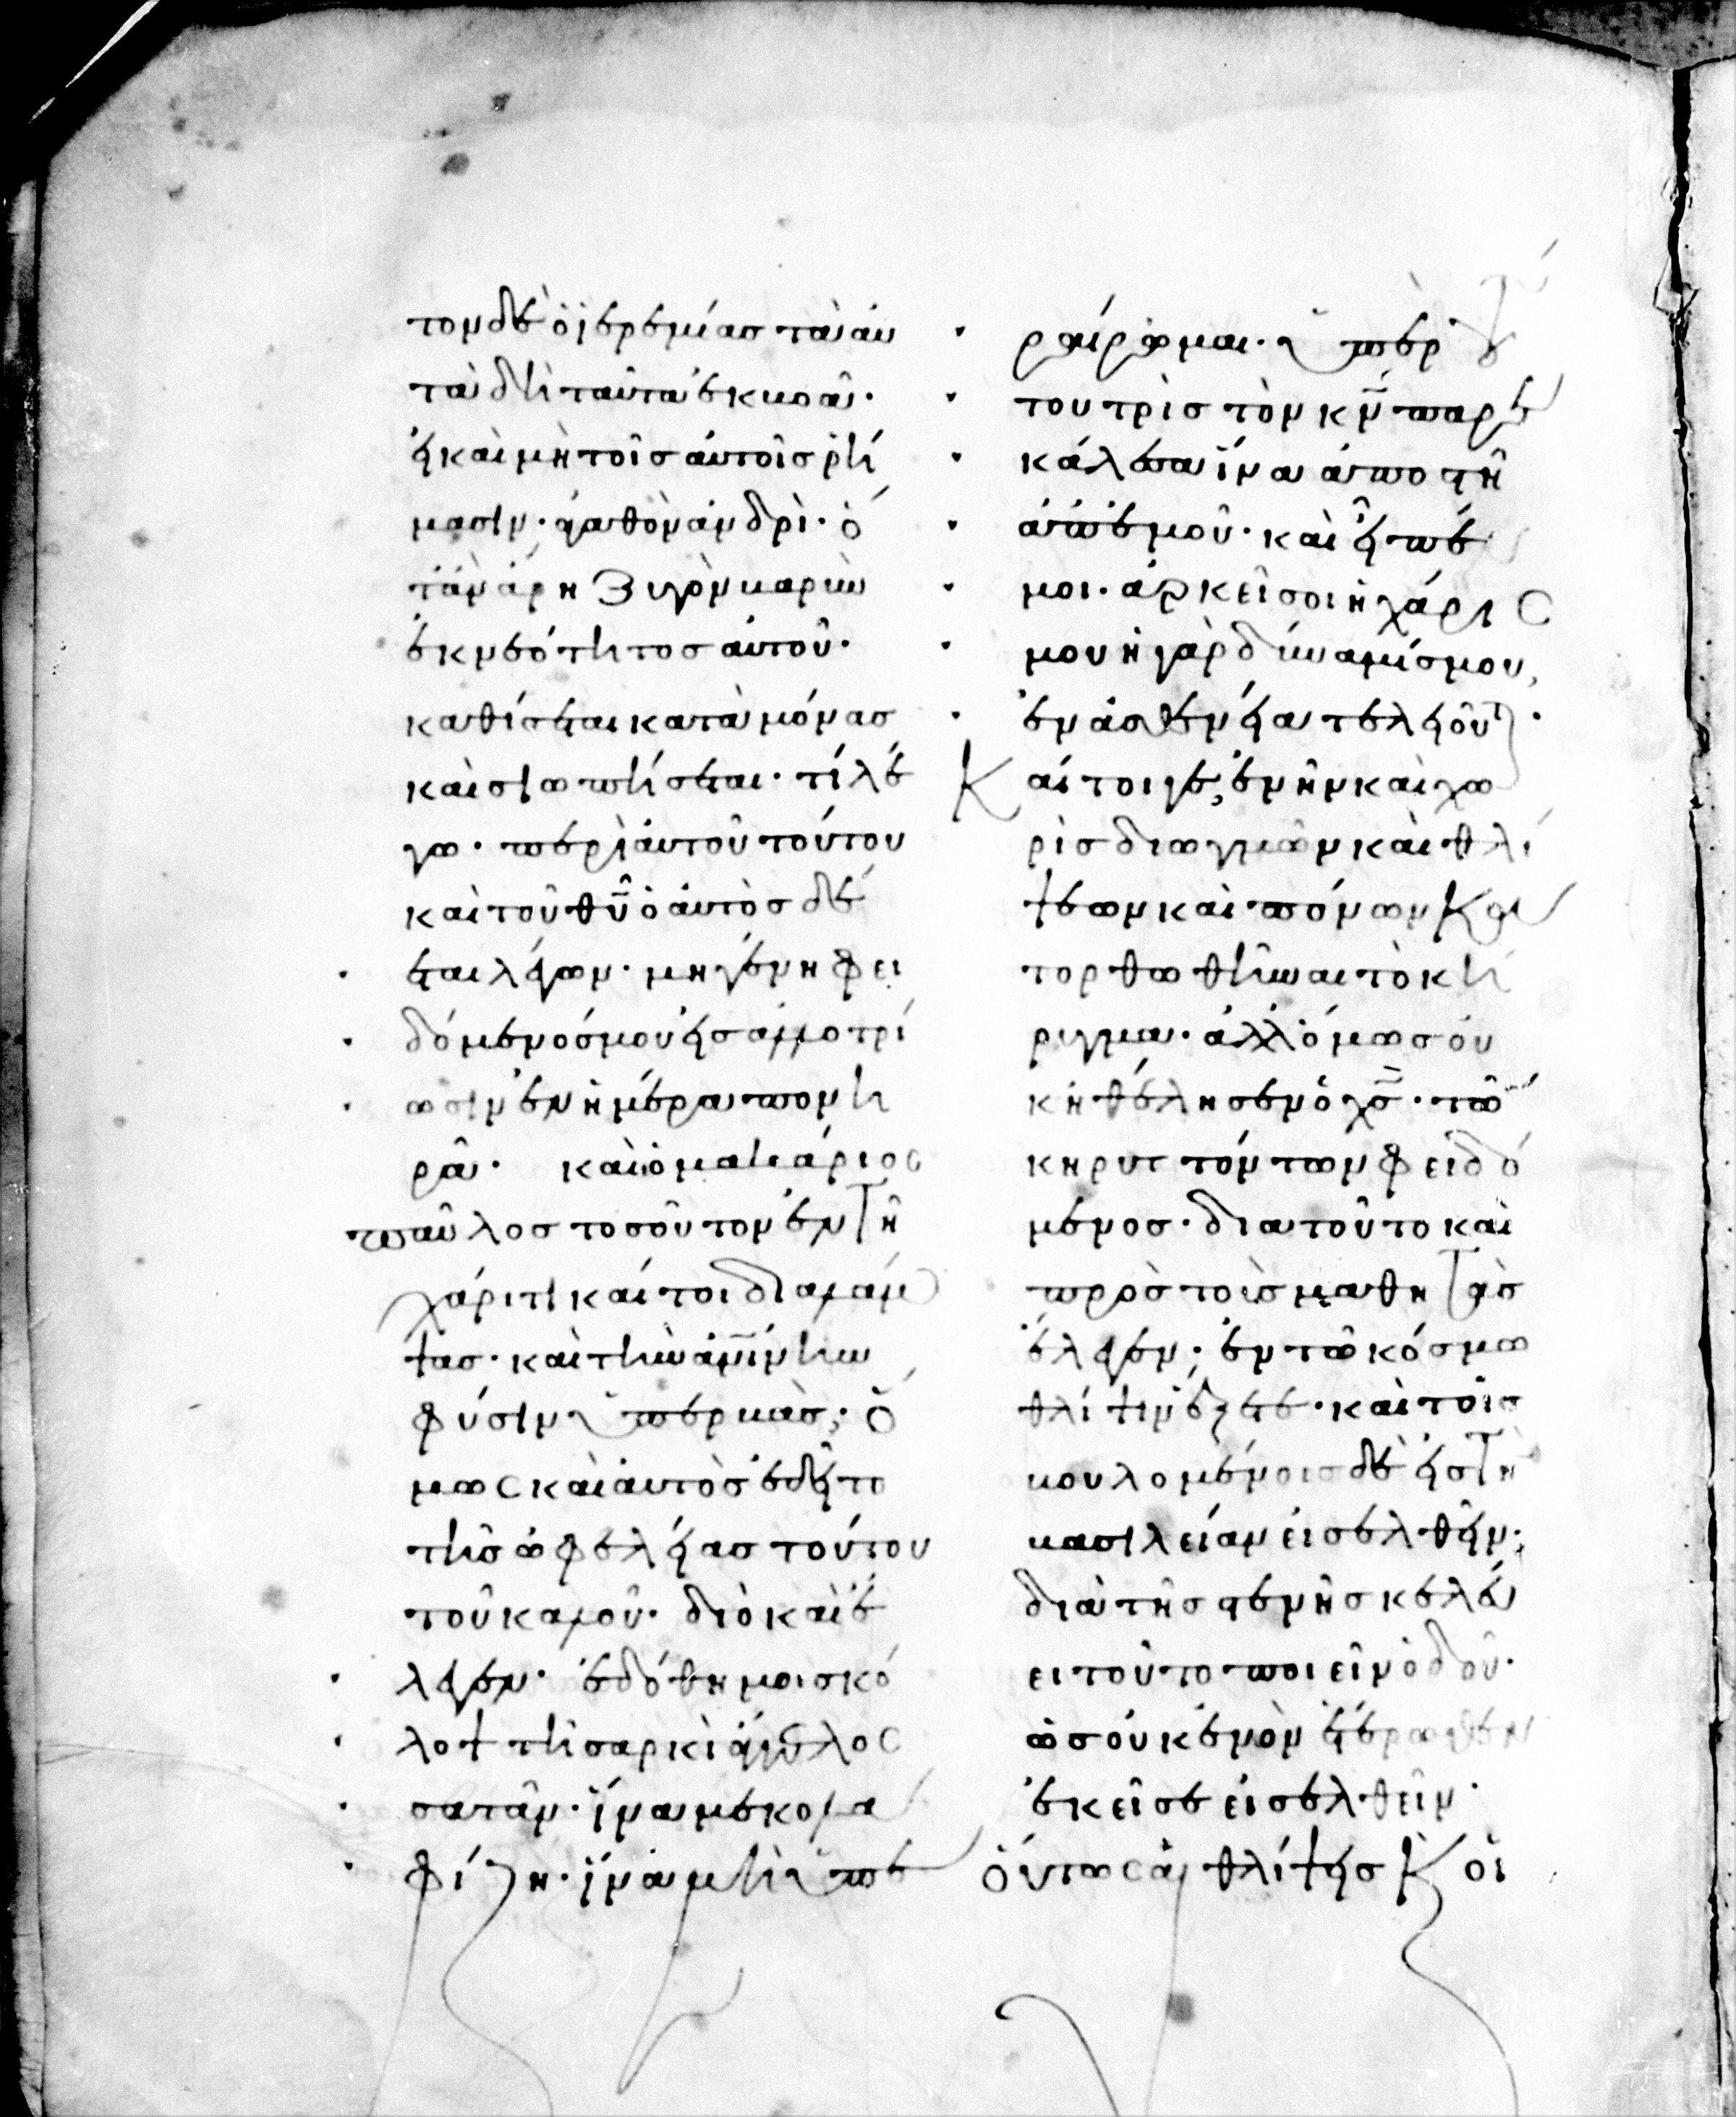 τον δὲ ὁ ἱερεμίας τὰ αὐ
τὰ δὴ ταῦτα ἐκβοᾶ·
εἰ καὶ μὴ τοῖς αὐτοῖς ῥή
μασιν· ἀγαθὸν ἀνδρὶ· ὅ
τὰν ἄρη ζυγὸν βαρὺν
ἐκ νεότητος αὐτοῦ·
καθίσεται κατὰ μόνας
καὶ σιωπήσεται· τί λέ
γω· περὶ αὐτοῦ τούτου
καὶ τοῦ θυ ὁ αὐτὸς δέ
εται λέγων· μὴ γένη φει
δόμενός μου εἰς ἀλλοτρί
ωσιν ἐν ἡμέρα πονη
ρᾶ· καὶ ὁ μακάριος
παῦλος τοσοῦτον ἐν τῆ
χάριτι καίτοι διαλάμ
ψας· καὶ τὴν ἀνίνην
φύσιν ὑπερβὰς, ὅ
μως καὶ αὐτὸς ἐδεῖτο
τῆς ὠφελείας τούτου
τοῦ καλοῦ· διὸ καὶ ἔ
λεγεν· ἐδόθη μοι σκό
λοψ τῆ σαρκὶ ἄγγελος
σατᾶν· ἵνα με κολα
φίζη· ἵνα μὴ ὑπε
ραίρωμαι· ὑπὲρ τού
του τρὶς τὸν κν παρε
κάλεσα ἵνα ἀποστῆ
ἀπ' ἐμοῦ· καὶ εἶπέ
μοι· ἀρκεῖ σοι ἡ χάρις
μου ἡ γὰρ δύναμίς μου,
ἐν ἀσθενεία τελειοῦται·
Καίτοιγε, ἐνῆν καὶ χω
ρὶς διωγμῶν καὶ θλί
ψεων καὶ πόνων κα
τορθωθῆναι τὸ κή
ρυγμα· ἀλλ' ὅμως οὐ
κ ἠθέλησεν ὁ χς· τῶν
κηρυττόντων φειδό
μενος· διὰ τοῦτο καὶ
πρὸς τοὺς μαθητὰς
ἔλεγεν· ἐν τῶ κόσμω
θλίψιν ἕξετε· καὶ τοῖς
βουλομένοις δὲ εἰς τὴν
βασιλείαν εἰσελθεῖν,
διὰ τῆς στενῆς κελεύ
ει τοῦτο ποιεῖν ὁδοῦ·
ὡς οὐκ ἐνὸν ἑτέρωθεν
ἐκεῖσε εἰσελθεῖν·
ὅντως αἱ θλίψεις καὶ οἱ